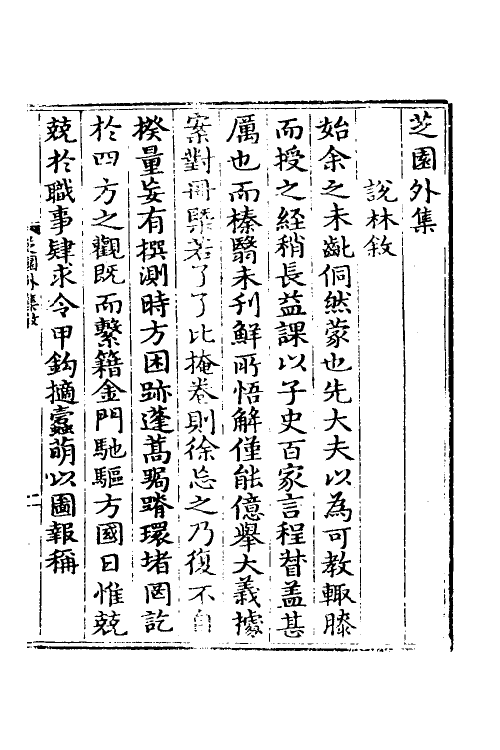 芝園外集
說林敘
始余之未齔侗然蒙也先大夫以為可教輙膝
而授之經稍長益課以子史百家言程督盖甚
厲也而榛翳未刋鮮所悟解僅能億舉大義據
案對冊槩若了了比掩卷則徐忘之乃復不自
揆量妄有撰測時方困跡蓬蒿跼蹐環堵罔訖
於四方之觀既而繫籍金門馳驅方國日惟兢
兢於職事肆求令甲鈎擿蠹萌以圖報稱
芝園外集敘
一